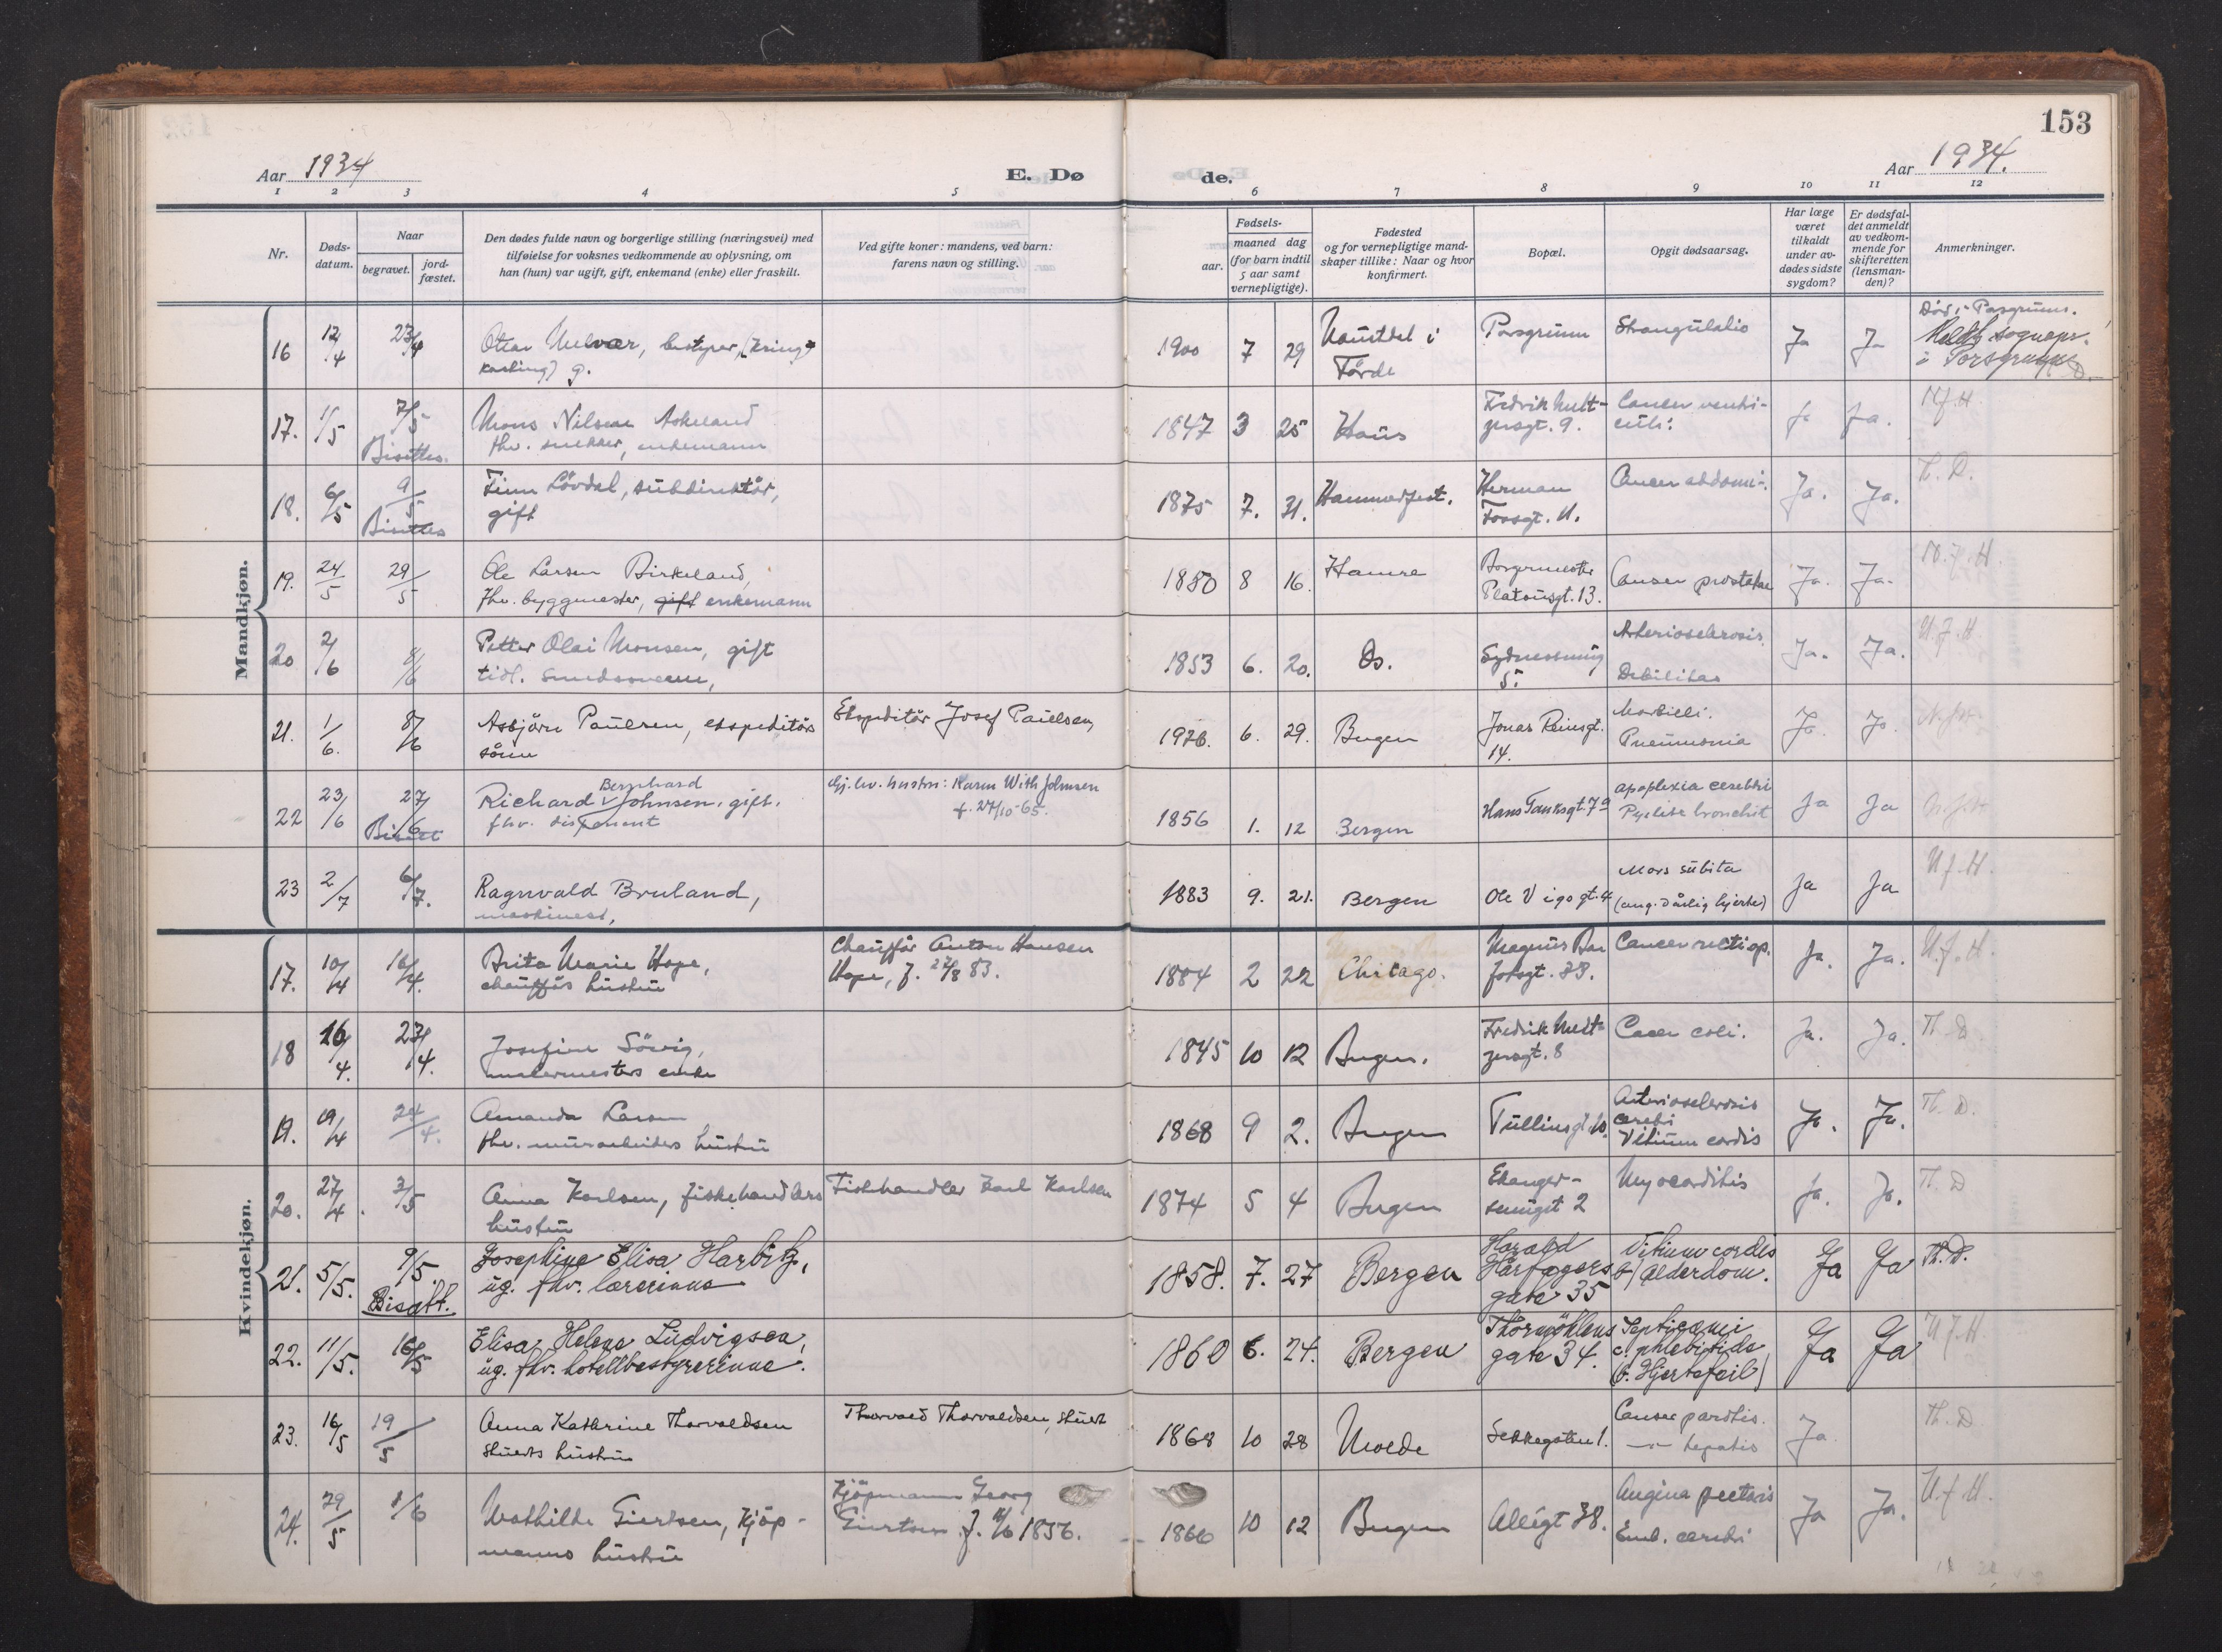 153
Aar 1934
E. Dø
de.
Aar 1934.
1 2 3 4 5 6 7 8 9 10 11 12
Nr.
Døds-
datum.
Naar
begravet.
jord-
fæstet.
Den dødes fulde navn og borgerlige stilling (næringsvei) med
tilføielse for voksnes vedkommende av oplysning, om
han (hun) var ugift, gift, enkemand (enke) eller fraskilt.
Ved gifte koner: mandens, ved barn:
farens navn og stilling.
Fødsels-
aar.
maaned dag
(for barn indtil
5 aar samt
vernepligtige).
Fødested
og for vernepligtige mand-
skaper tillike: Naar og hvor
konfirmert.
Bopæl.
Opgit dødsaarsag.
Har læge
været
tilkaldt
under av-
dødes sidste
sygdom?
Er dødsfal-
det anmeldt
av vedkom-
mende for
skifteretten
(lensman-
den)?
Anmerkninger.
Mandkjøn.
16 12/4 23/4 bestyrer, g. 1900 7 29 i Førde Porsgrunn Strangulatio Ja Ja Død i Porsgrunn.
i Porsgrunn
17. 1/5 7/5 Mons Nilsen Askeland 1847 3 25 Haus Fredrik Melt- Cancer ventri- Ja Ja. N.f.H.
Bisettes. fhv. snekker, enkemann zersgt. 9. culi.
18. 6/5 9/5 Finn Løvdal, subdirektør, 1875 7. 31. Hammerfest. Herman Cancer abdomi-. Ja. Ja. Th. D.
Bisettes gift Fossgt. 11.
19. 24/5 29/5 Ole Larsen Birkeland, 1850 8 16. Hamre Borgermester Cancer prostatae Ja. Ja. N.f.H.
fhv. byggmester, gift enkemann Platousgt. 13.
20 2/6 8/6 Petter Olai Monsen, gift 1853 6. 20. Os. Sydnessmug Arteriosclerosis. Ja. Ja. N.f.H.
tidl. 5. Debilitas
21. 1/6. 8/6 Asbjørn Paulsen, ekspeditørs Ekspeditør Josef Paulsen, 1926. 6. 29. Bergen Jonas Reinsgt. Morbilli. Ja. Ja.
sønn 14. Pneumonia
22 23/6 27/6 Richard Bernhard Johnsen. gift. Gj.lev. hustru: Karen With Johnsen 1856 1. 12 Bergen Hans Tanksgt. 7a apoplexia cerebri Ja Ja
Bisatt fhv. disponent f. 27/10-65. bronchit
23 2/7 6/7. Ragnvald Bruland, 1883 9. 21. Bergen Ole Vigs gt. 4 Mors subita Ja Ja N.f.H.
maskinist, (ang. dårlig hjerte)
Kvindekjøn.
17. 10/4 16/4. Brita Marie Hope, Chauffør Anton Hansen 1884 2 22 Chicago. Magnus Bar Cancer recti op. Ja. Ja. N.f.H.
chaufførs hustru Hope, f. 27/8 83. fotsgt. 38.
18 16/4. 23/4. Josefine Søvig, 1845 10 12 Bergen. Fredrik Melt- Cancer coli. Ja. Ja. Th. D
malermesters enke zersgt. 8
19. 19/4 24/4. Amanda Larsen 1868 9 2. Bergen Tullinsgt. 10. Arteriosclerosis Ja. Ja. Th. D.
fhv. murarbeiders hustru cerebri
Vitium cordis
20. 27/4. 3/5 Anna Karlsen, fiskehandlers Fiskehandler Karl Karlsen 1874 5 4 Bergen Ekanger- Myocarditis Ja. Ja. Th. D
hustru smuget 2
21. 5/5. 9/5. Josephine Elisa Harbitz, 1858. 7. 27 Bergen Harald Vitium cordis Ja Ja Th. D.
Bisatt. ug. fhv. lærerinne Hårfagers Alderdom.
gate 35
22. 11/5. 16/5 Elisa Helene Ludvigsen, 1860 6. 24. Bergen Thormøhlens Septicæmi Ja Ja N.f.H.
ug. fhv. hotellbestyrerinne. gate 34. c. phlebitide
(o. Hjertefeil)
23. 16/5 19/5 Anna Kathrine Thorvaldsen Thorvald Thorvaldsen, stuert 1868 10 28 Molde Sekkegaten 1. Cancer Ja Th. D
stuerts hustru —"— hepatis
24. 29/5 1/6 Mathilde Giertsen, kjøp- Kjøpmann Georg 1860 10 12 Bergen Allégt 38. Angina pectoris Ja Ja. N.f.H.
manns hustru Giertsen f. 1856. Emb. cerebri